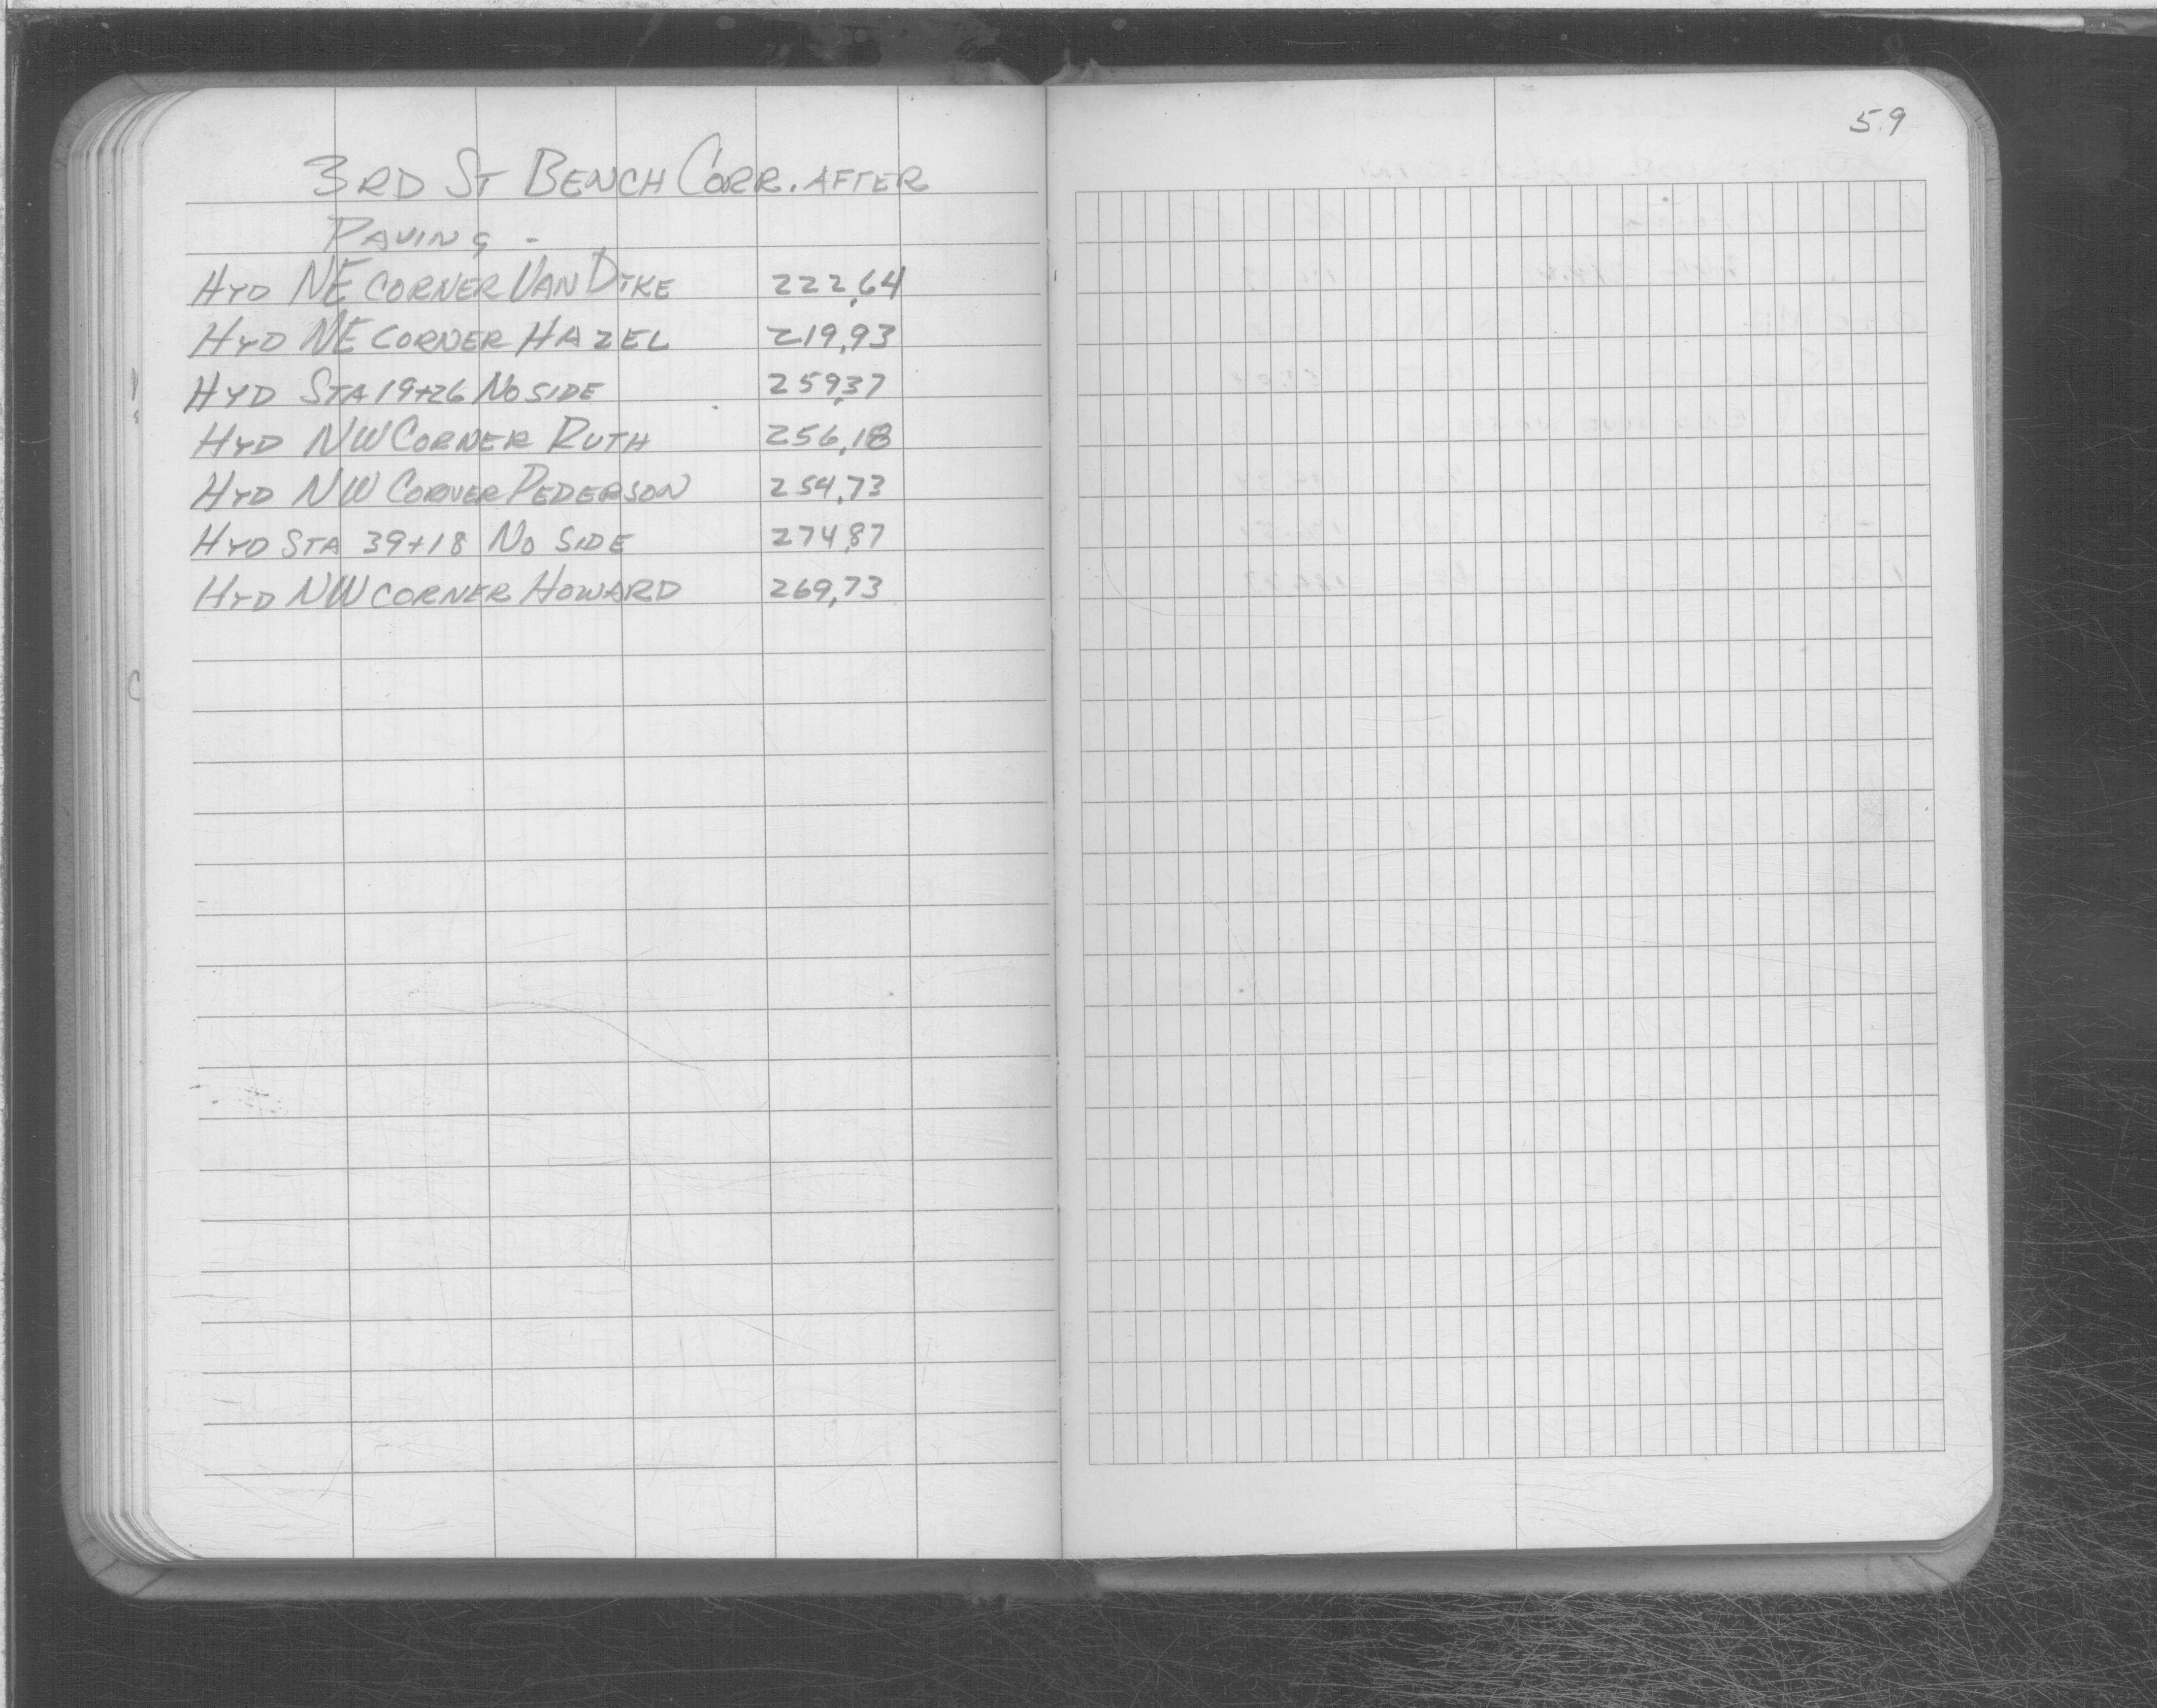 59
3RD ST BENCH CORR. AFTER
PAVING -
HYD NE CORNER VAN DYKE 222.64
HYD NE CORNER HAZEL 219.93
HYD STA 19+26 NO SIDE 259.37
HYD NW CORNER RUTH 256.18
HYD NW CORNER PEDERSON 254.73
HYD STA 39+18 NO SIDE 274.87
HYD NW CORNER HOWARD 269.73